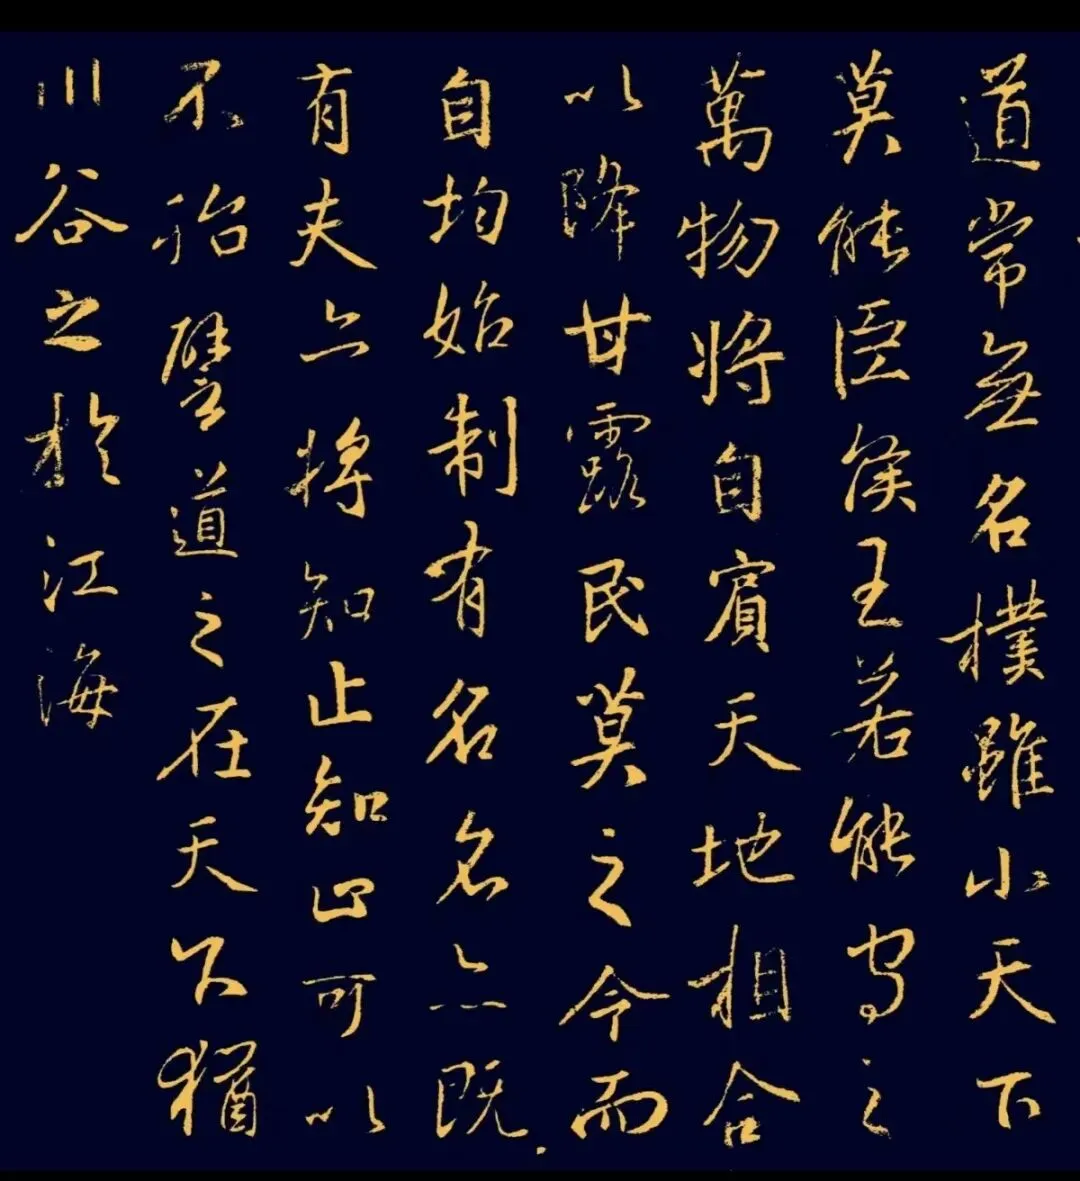 道常無名樸雖小天下
莫能臣侯王若能守之
萬物將自賓天地相合
以降甘露民莫之令而
自均始制有名名亦既
有夫亦將知止知止可以
不殆譬道之在天下猶
川谷之於江海